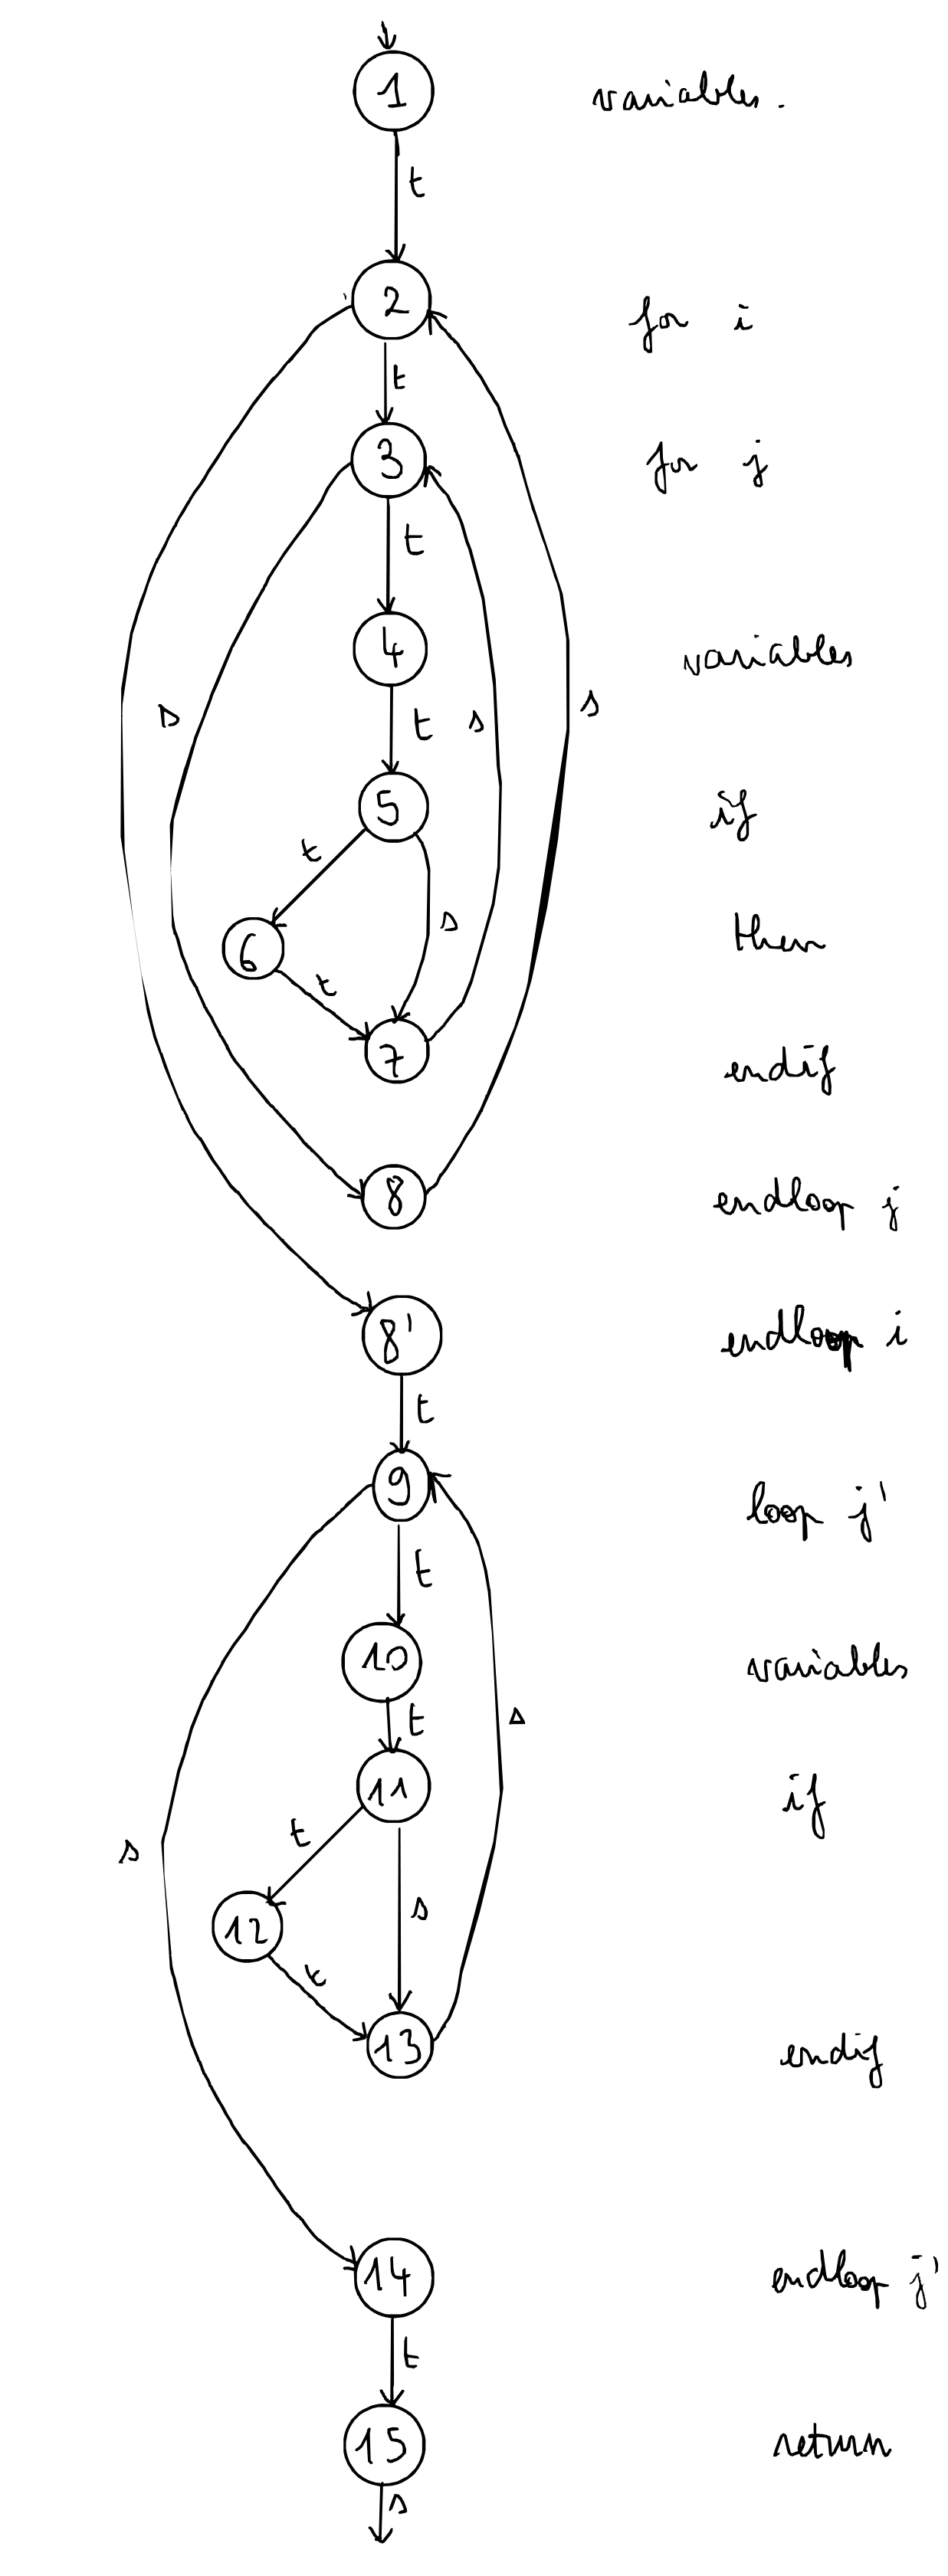 1 variables.
t
2 for i
t
3 for j
t
4 variables
s t s s
5 if
t
s
6 then
t
7 endif
8 endloop j
8' endloop i
t
9 loop j'
t
10 variables
t s
11 if
t
s s
12
t
13 endif
14 endloop j'
t
15 return
s